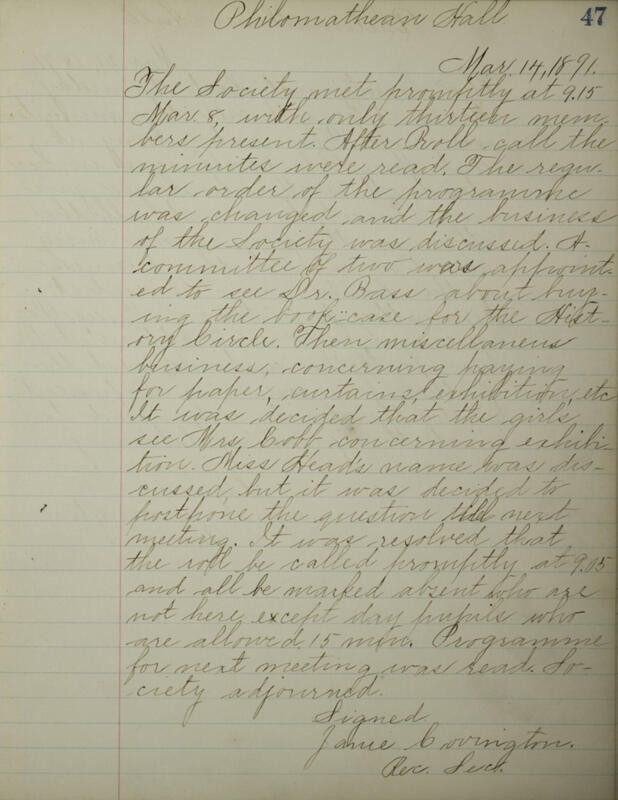 Philomathean Hall
47
Mar. 14, 1891.
The Society met promptly at 9.15
Mar 8, with only thirteen mem-
bers present. After Roll call the
minuites were read. The regu-
lar order of the programme
was changed and the business
of the Society was discussed. A
committee of two was appoint-
ed to see Dr. Bass about buy-
ing the book-case for the Hist-
ory Circle. Then miscellaneus
business, concerning paying
for paper, curtains, exhibition, etc
It was decided that the girls
see Mrs. Cobb concerning exhibi-
tion. Miss Head's name was dis-
cussed, but it was decided to
postpone the question till next
meeting. It was resolved that
the roll be called promptly at 9.05
and all be marked absent who are
not here except day pupils who
are allowed 15 min. Programme
for next meeting was read. So-
ciety adjourned.
Signed
Janie Covington.
Rec. Sect.